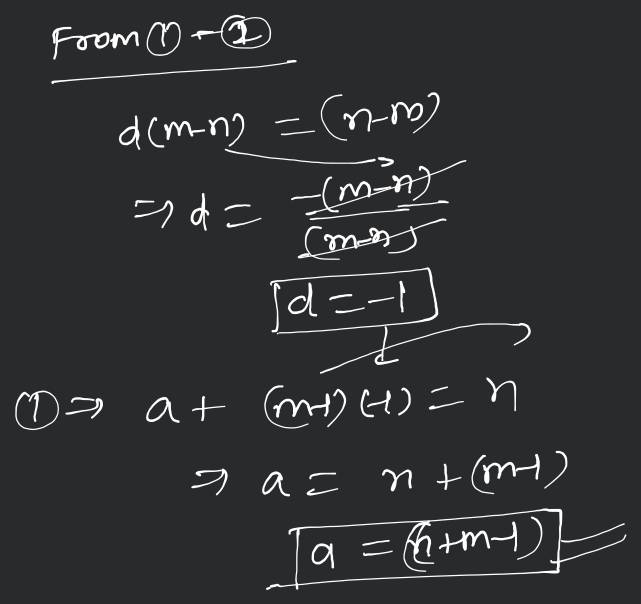 From ① - ②
d(m-n) = (n-m)
⇒ d = -(m-n)
(m-n)
d = -1
① ⇒ a + (m-1)(-1) = n
⇒ a = n + (m-1)
a = (n+m-1)